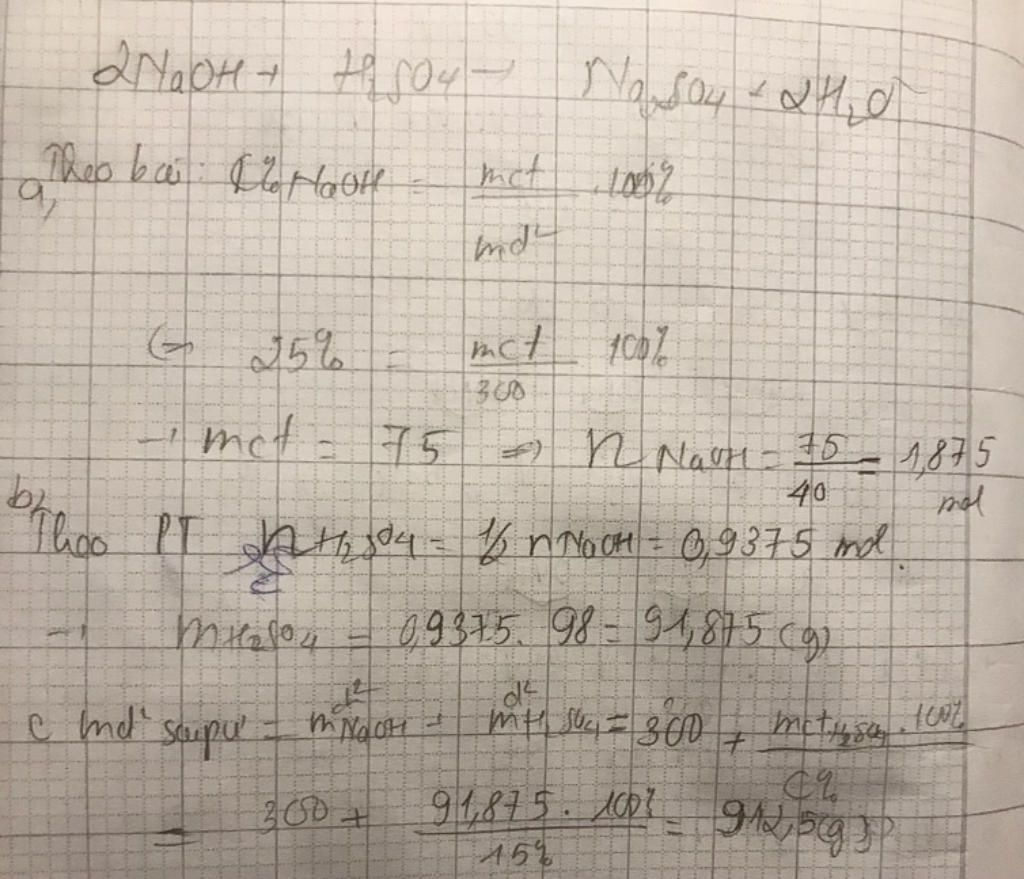 2NaOH + H₂SO₄ → Na₂SO₄ + 2H₂O
a, Theo bài: C% NaOH = mct/md² . 100%
⇔ 25% = mct/300 100%
→ mct = 75 ⇒ n NaOH = 75/40 = 1,875 mol
b, Theo PT n H₂SO₄ = 1/2 n NaOH = 0,9375 mol.
→ m H₂SO₄ = 0,9375. 98 = 91,875 (g)
c md² saupư = md² NaOH + md² H₂SO₄ = 300 + mct H₂SO₄ . 100%/C%
= 300 + 91,875 . 100%/15% = 912,5(g)